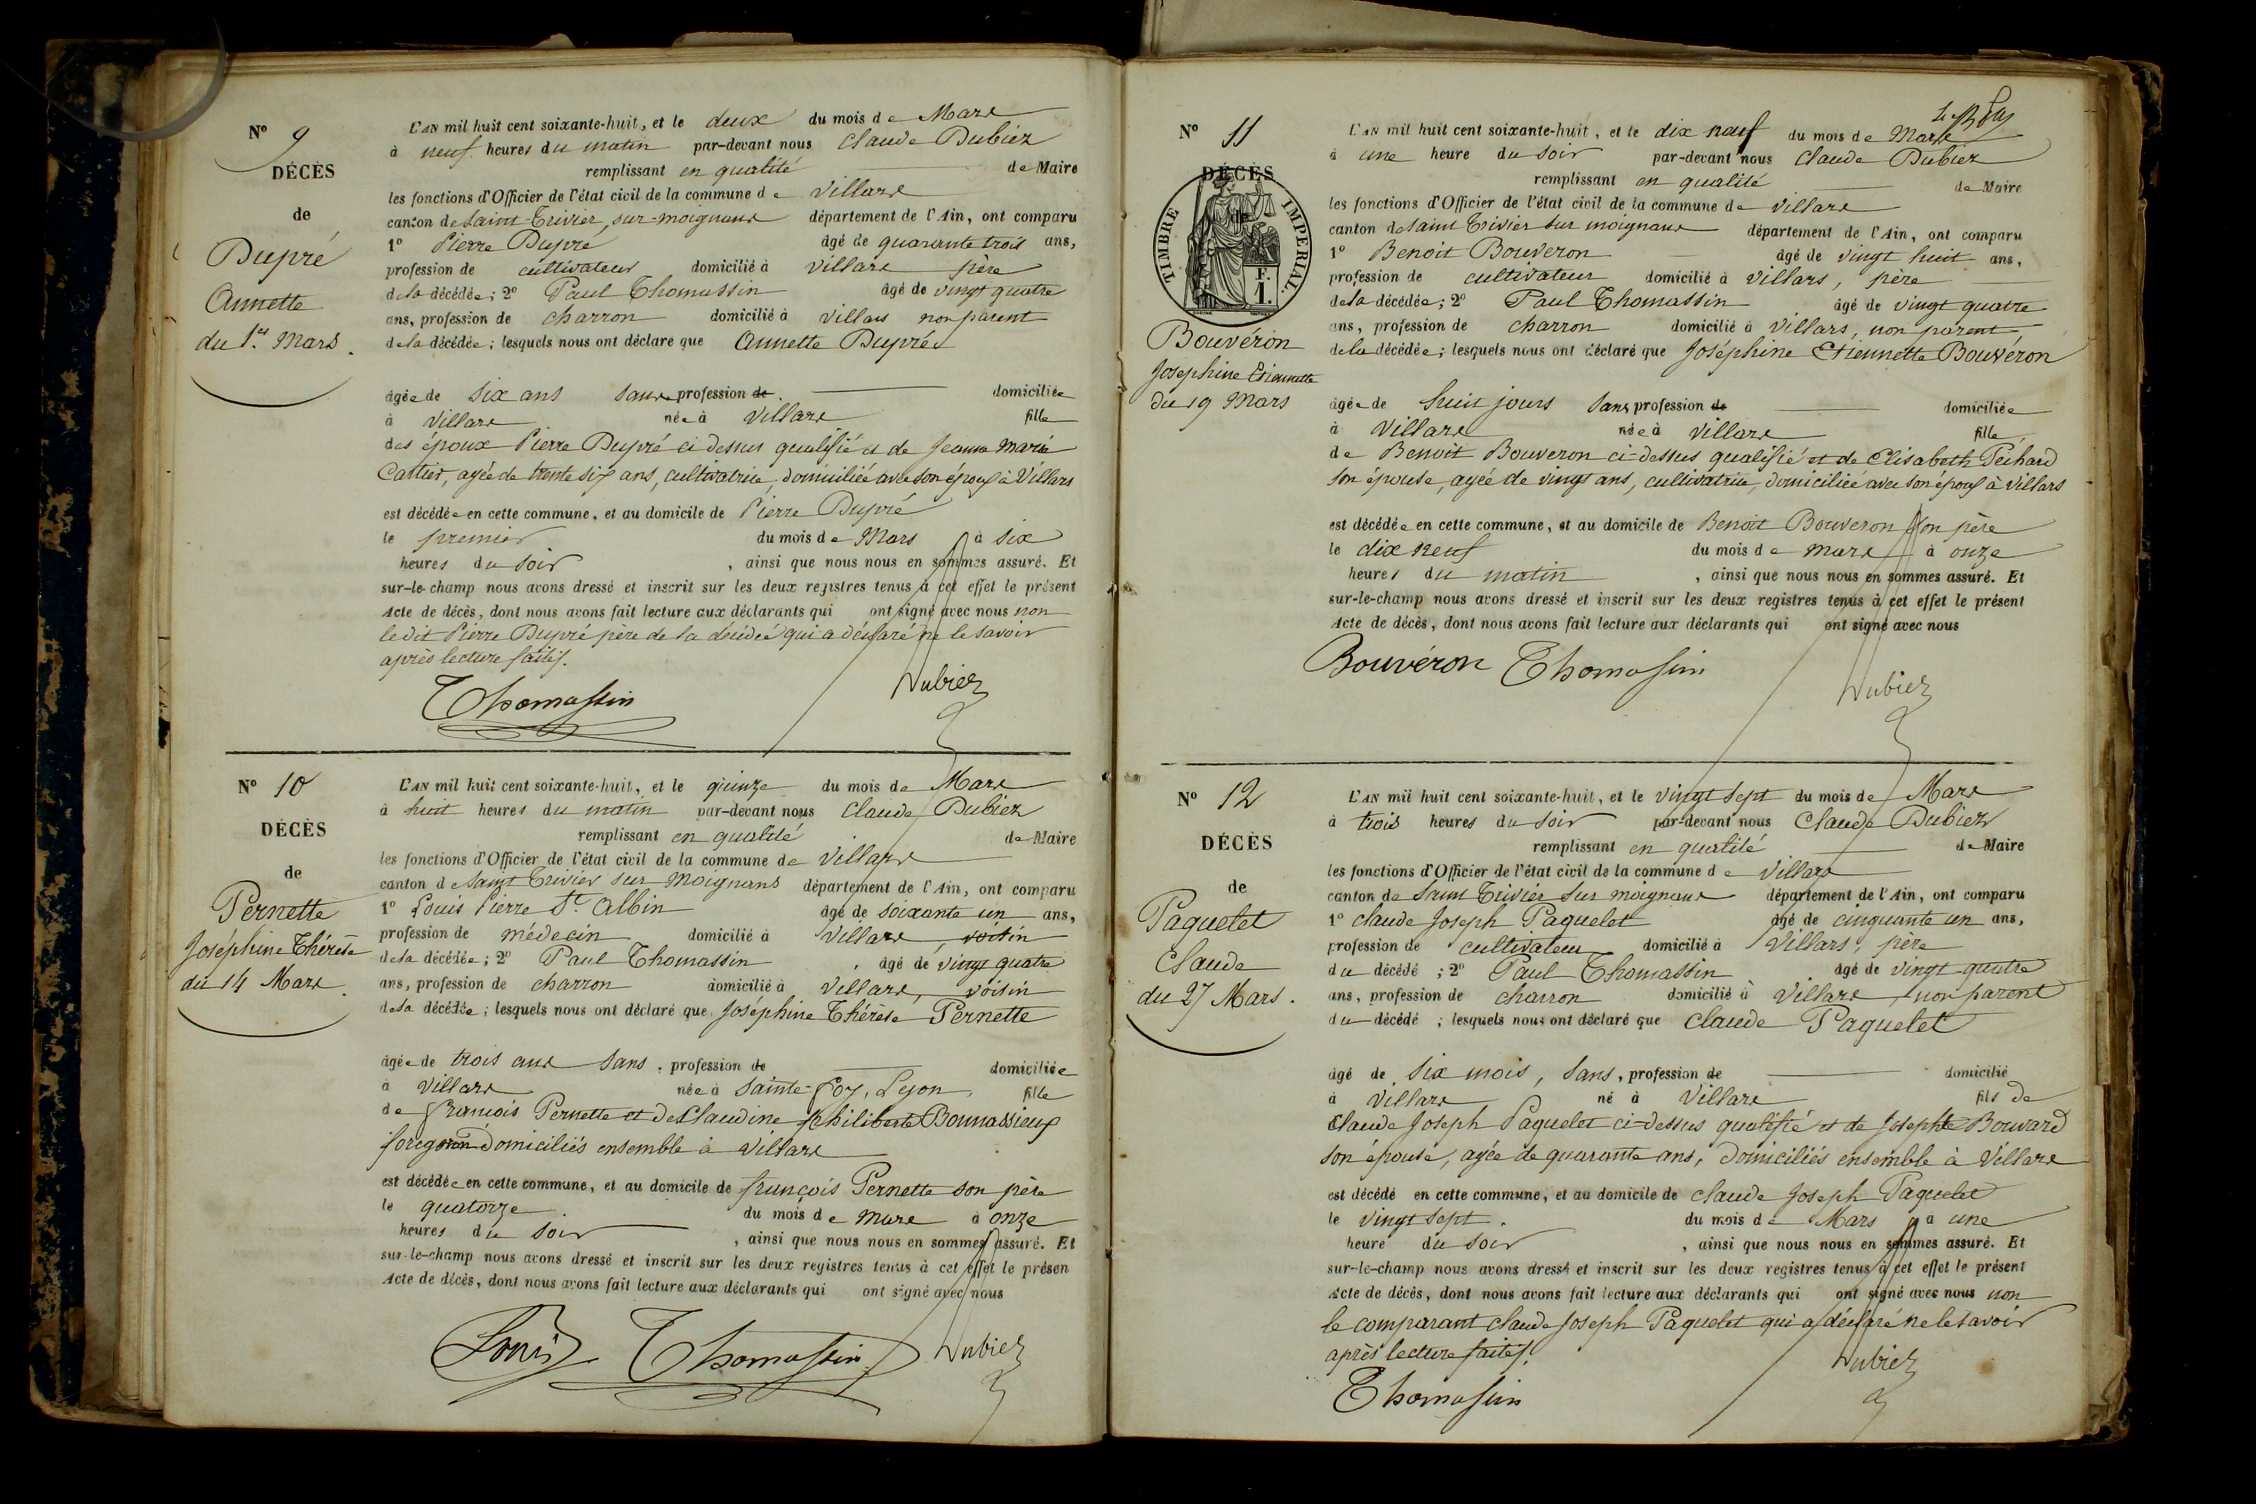 N° 9
DÉCÈS
de
Dupré
Annette
du 1er Mars.
L'AN mil huit cent soixante-huit, et le deux du mois de Mars
à neuf heures du matin par-devant nous Claude Dubiez
remplissant en qualité de Maire
les fonctions d'Officier de l'état civil de la commune de Villars
canton de Saint-Trivier, sur-moignans département de l'Ain, ont comparu
1° Pierre Dupré âgé de quarante trois ans,
profession de cultivateur domicilié à Villars père
de la décédée; 2° Paul Thomassin âgé de vingt quatre
ans, profession de charron domicilié à Villars non parent
de la décédée; lesquels nous ont déclaré que Annette Dupré
âgée de six ans sans profession de domiciliée
à Villars née à Villars fille
des époux Pierre Dupré ci dessus qualifié et de Jeanne Marie
Cartier, agée de trente six ans, cultivatrice, domiciliée avec son époux à Villars
est décédée en cette commune, et au domicile de Pierre Dupré
le premier du mois de Mars à six
heures du soir, ainsi que nous nous en sommes assuré. Et
sur-le-champ nous avons dressé et inscrit sur les deux registres tenus à cet effet le présent
Acte de décès, dont nous avons fait lecture aux déclarants qui ont signé avec nous non
le dit Pierre Dupré père de la décédée qui a déclaré ne le savoir
après lecture faite.
Thomassin Dubiez
N° 10
DÉCÈS
de
Pernette
Joséphine Thérèse
du 14 Mars.
L'AN mil huit cent soixante-huit, et le quinze du mois de Mars
à huit heures du matin par-devant nous Claude Dubiez
remplissant en qualité de Maire
les fonctions d'Officier de l'état civil de la commune de Villars
canton de Saint Trivier sur Moignans département de l'Ain, ont comparu
1° Louis Pierre St. Albin âgé de soixante un ans,
profession de médecin domicilié à Villars, voisin
de la décédée; 2° Paul Thomassin, âgé de vingt quatre
ans, profession de charron domicilié à Villars, voisin
de la décédée; lesquels nous ont déclaré que Joséphine Thérèse Pernette
âgée de trois ans sans, profession de domiciliée
à Villars née à Sainte-Foy, Lyon, fille
de françois Pernette et de Claudine philiberte Bonnassieux
domiciliés ensemble à Villars
est décédée en cette commune, et au domicile de françois Pernette son père
le quatorze du mois de mars à onze
heures du soir, ainsi que nous nous en sommes assuré. Et
sur-le-champ nous avons dressé et inscrit sur les deux registres tenus à cet effet le présen
Acte de décès, dont nous avons fait lecture aux déclarants qui ont signé avec nous
Louis Thomassin Dubiez
N° 11
DÉCÈS
de
TIMBRE IMPÉRIAL.
F.
1.
Bouvéron
Josephine Etiennette
du 19 Mars
L'AN mil huit cent soixante-huit, et le dix neuf du mois de Mars
à une heure du soir par-devant nous Claude Dubiez
remplissant en qualité de Maire
les fonctions d'Officier de l'état civil de la commune de Villars
canton de Saint Trivier sur moignans département de l'Ain, ont comparu
1° Benoit Bouveron âgé de vingt huit ans,
profession de cultivateur domicilié à Villars, père
de la décédée; 2° Paul Thomassin âgé de vingt quatre
ans, profession de charron domicilié à Villars, non parent
de la décédée; lesquels nous ont déclaré que Joséphine Etiennette Bouvéron
âgée de huit jours sans profession de domiciliée
à Villars née à Villars fille
de Benoit Bouveron ci-dessus qualifié et de Elisabeth
son épouse, agée de vingt ans, cultivatrice, domiciliée avec son époux à Villars
est décédée en cette commune, et au domicile de Benoit Bouveron son père
le dix neuf du mois de mars à onze
heures du matin, ainsi que nous nous en sommes assuré. Et
sur-le-champ nous avons dressé et inscrit sur les deux registres tenus à cet effet le présent
Acte de décès, dont nous avons fait lecture aux déclarants qui ont signé avec nous
Bouvéron Thomassin Dubiez
N° 12
DÉCÈS
de
Paquelet
Claude
du 27 Mars.
L'AN mil huit cent soixante-huit, et le vingt sept du mois de Mars
à trois heures du soir par-devant nous Claude Dubiez
remplissant en qualité de Maire
les fonctions d'Officier de l'état civil de la commune de Villars
canton de Saint Trivier sur moignans département de l'Ain, ont comparu
1° Claude Joseph Paquelet âgé de cinquante un ans,
profession de cultivateur domicilié à Villars, père
du décédé; 2° Paul Thomassin âgé de vingt quatre
ans, profession de charron domicilié à Villars, non parent
du décédé; lesquels nous ont déclaré que Claude Paquelet
âgé de six mois, sans, profession de domicilié
à Villars né à Villars fils de
Claude Joseph Paquelet ci-dessus qualifié et de Josephte Bouvard
son épouse, agée de quarante ans, domiciliés ensemble à Villars
est décédé en cette commune, et au domicile de Claude Joseph Paquelet
le vingt sept. du mois de Mars à une
heure du soir, ainsi que nous nous en sommes assuré. Et
sur-le-champ nous avons dressé et inscrit sur les deux registres tenus à cet effet le présent
Acte de décès, dont nous avons fait lecture aux déclarants qui ont signé avec nous non
le comparant Claude Joseph Paquelet qui a déclaré ne le savoir
après lecture faite.
Thomassin Dubiez